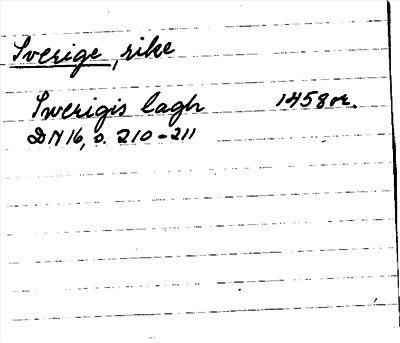 Sverige, rike
Swerigis lagh 1458 or.
DN 16, s. 210-211